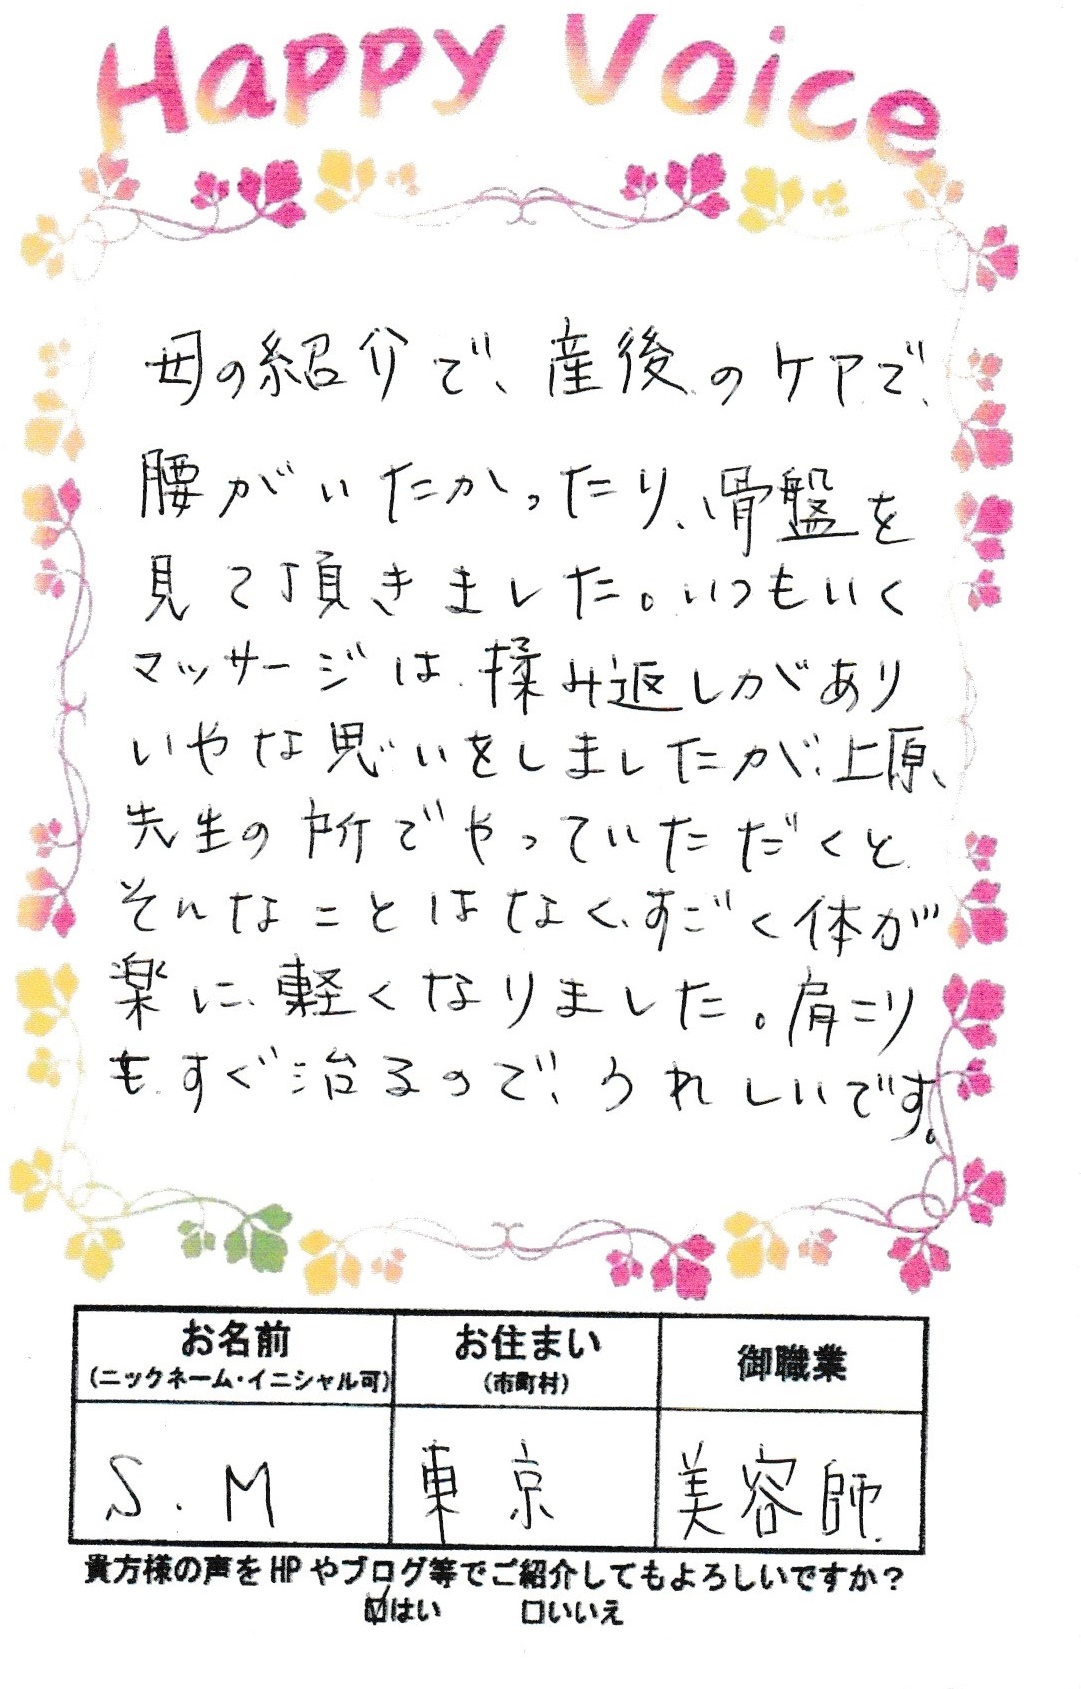 Happy Voice
母の紹介で、産後のケアで、
腰がいたかったり、骨盤を
見て頂きました。いつもいく
マッサージは、揉み返しがあり
いやな思いをしましたが、上原、
先生の所でやっていただくと
そんなことはなく、すごく体が
楽に、軽くなりました。肩こり
も、すぐ治るので、うれしいです。
お名前 お住まい 御職業
(ニックネーム・イニシャル可) (市町村)
S.M 東京 美容師
貴方様の声をHPやブログ等でご紹介してもよろしいですか？
☑はい □いいえ